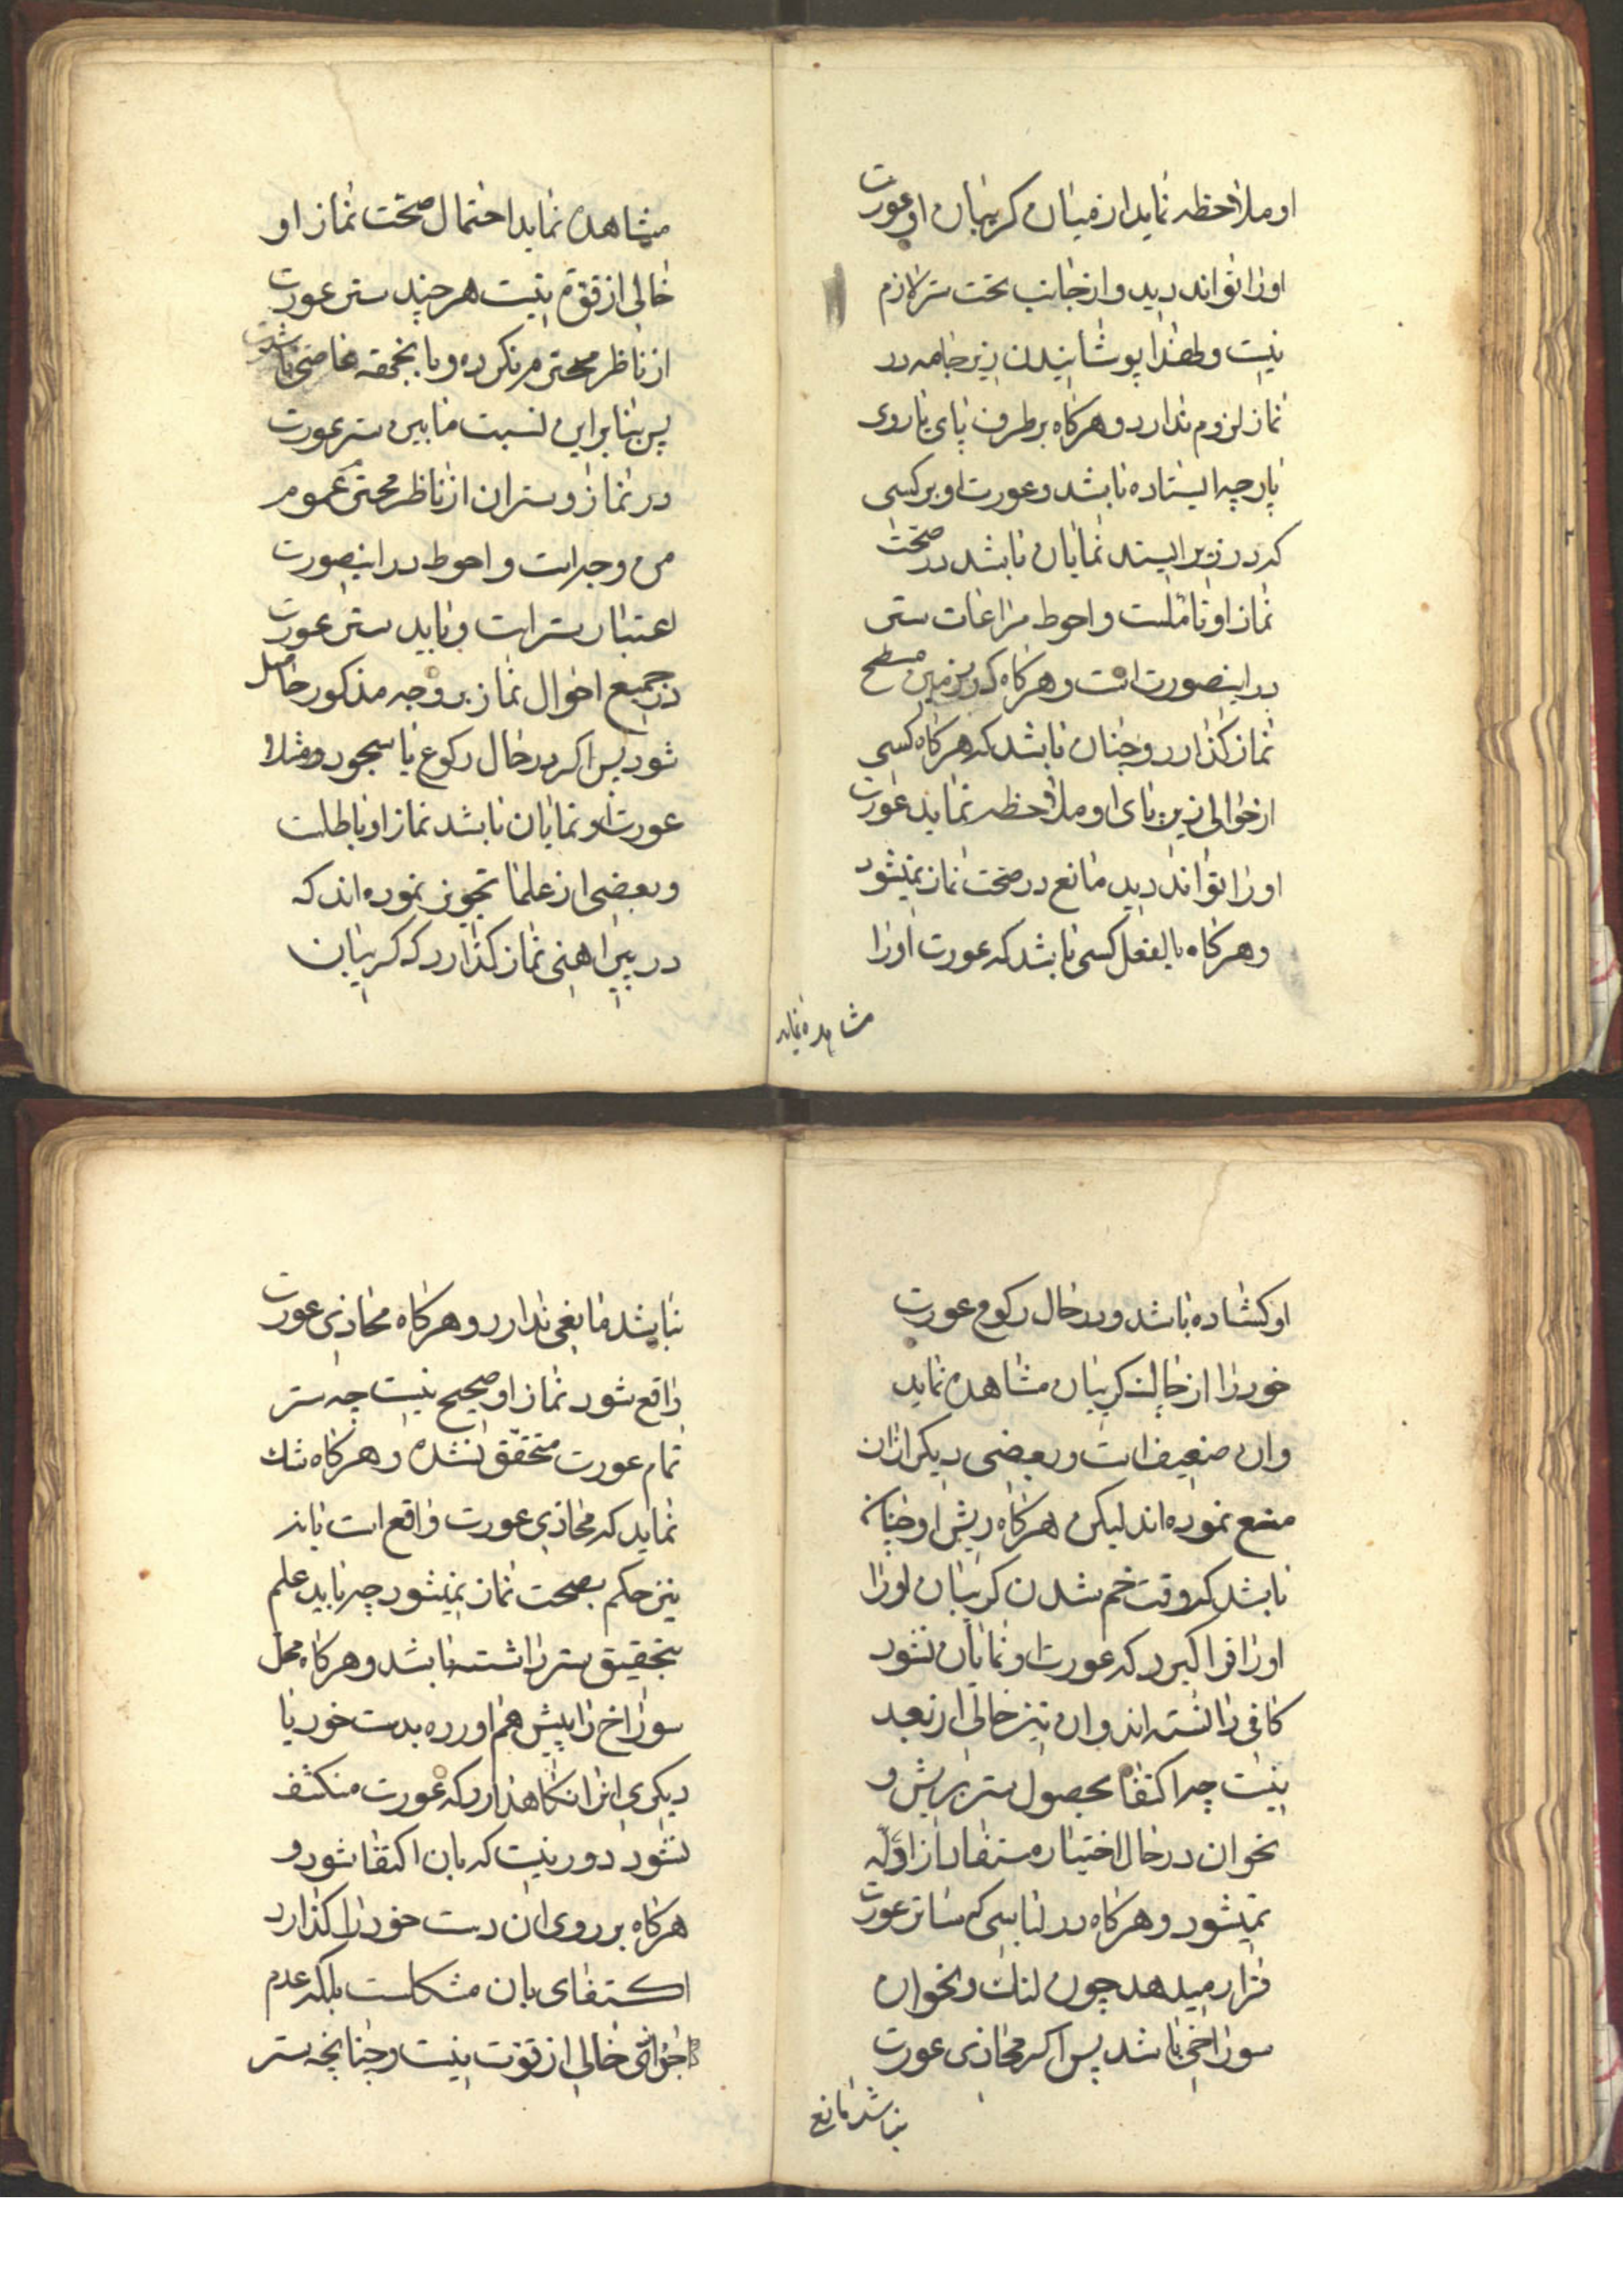 او ملاحظه نماید از میان کریبان او عورت
او را تواند دید و از جانب تحت ستر لازم
نیست و لهذا پوشانیدن زیر جامه در
نماز لزوم ندارد و هرکاه بر طرف پای یا روی
پارچه ایستاده باشد و عورت او بر کسی
که در زیر ایستد نمایان باشد در صحت
نماز او تاملست و احوط مراعات ستر
در اینصورت است و هرکاه که بر زمین مسطح
نماز کذارد و چنان باشد که هرکاه کسی
از حوالی زیر پای او ملاحظه نماید عورت
او را تواند دید مانع در صحت نماز نمیشود
و هرکاه بالفعل کسی باشد که عورت او را
مشاهده نماید
مشاهده نماید احتمال صحت نماز او
خالی از قوة نیست هر چند ستر عورت
از ناظر محترم نکرده و باینجهة عاصی باشد
پس بنابراین نسبت مابین ستر عورت
در نماز و ستر ان از ناظر محترم عموم
من وجه است و احوط در اینصورت
اعتبار ستر است و باید ستر عورت
در جمیع احوال نماز بر وجه مذکور حاصل
شود پس اکر در حال رکوع یا سجود مثلا
عورت او نمایان باشد نماز او باطلست
و بعضی از علما تجویز نموده اند که
در پیراهنی نماز کذارد که کریبان
او کشاده باشد و در حال رکوع عورت
خود را از چاک کریبان مشاهده نماید
وان ضعیف است و بعضی دیکر از ان
منع نموده اند لیکن هرکاه ریش او چنان
باشد که وقت خم شدن کریبان او را
او را فرا کیرد که عورت او نمایان نشود
کافی دانسته اند و ان نیز خالی از بعد
نیست چه اکتفاء بحصول ستر بریش و
نحو ان در حال اختیار مستفاد از ادله
نمیشود و هرکاه در لباسی که ساتر عورت
قرار میدهد چون لنک و نحو ان
سوراخی باشد پس اکر محاذی عورت
نباشد مانع
نباشد مانعی ندارد و هرکاه محاذی عورت
واقع شود نماز او صحیح نیست چه ستر
تمام عورت متحقق نشده و هرکاه شک
نماید که محاذی عورت واقع است یا نه
نیز حکم بصحت نماز نمیشود چه باید علم
بتحقیق ستر داشته باشد و هرکاه محل
سوراخ را پیش هم اورده بدست خود یا
دیکری انرا نکاهدارد که عورت منکشف
نشود دور نیست که بان اکتفا شود و
هرکاه بر روی ان دست خود را کذارد
اکتفای بان مشکلست بلکه عدم
اجزائش خالی از قوت نیست و چنانچه ستر